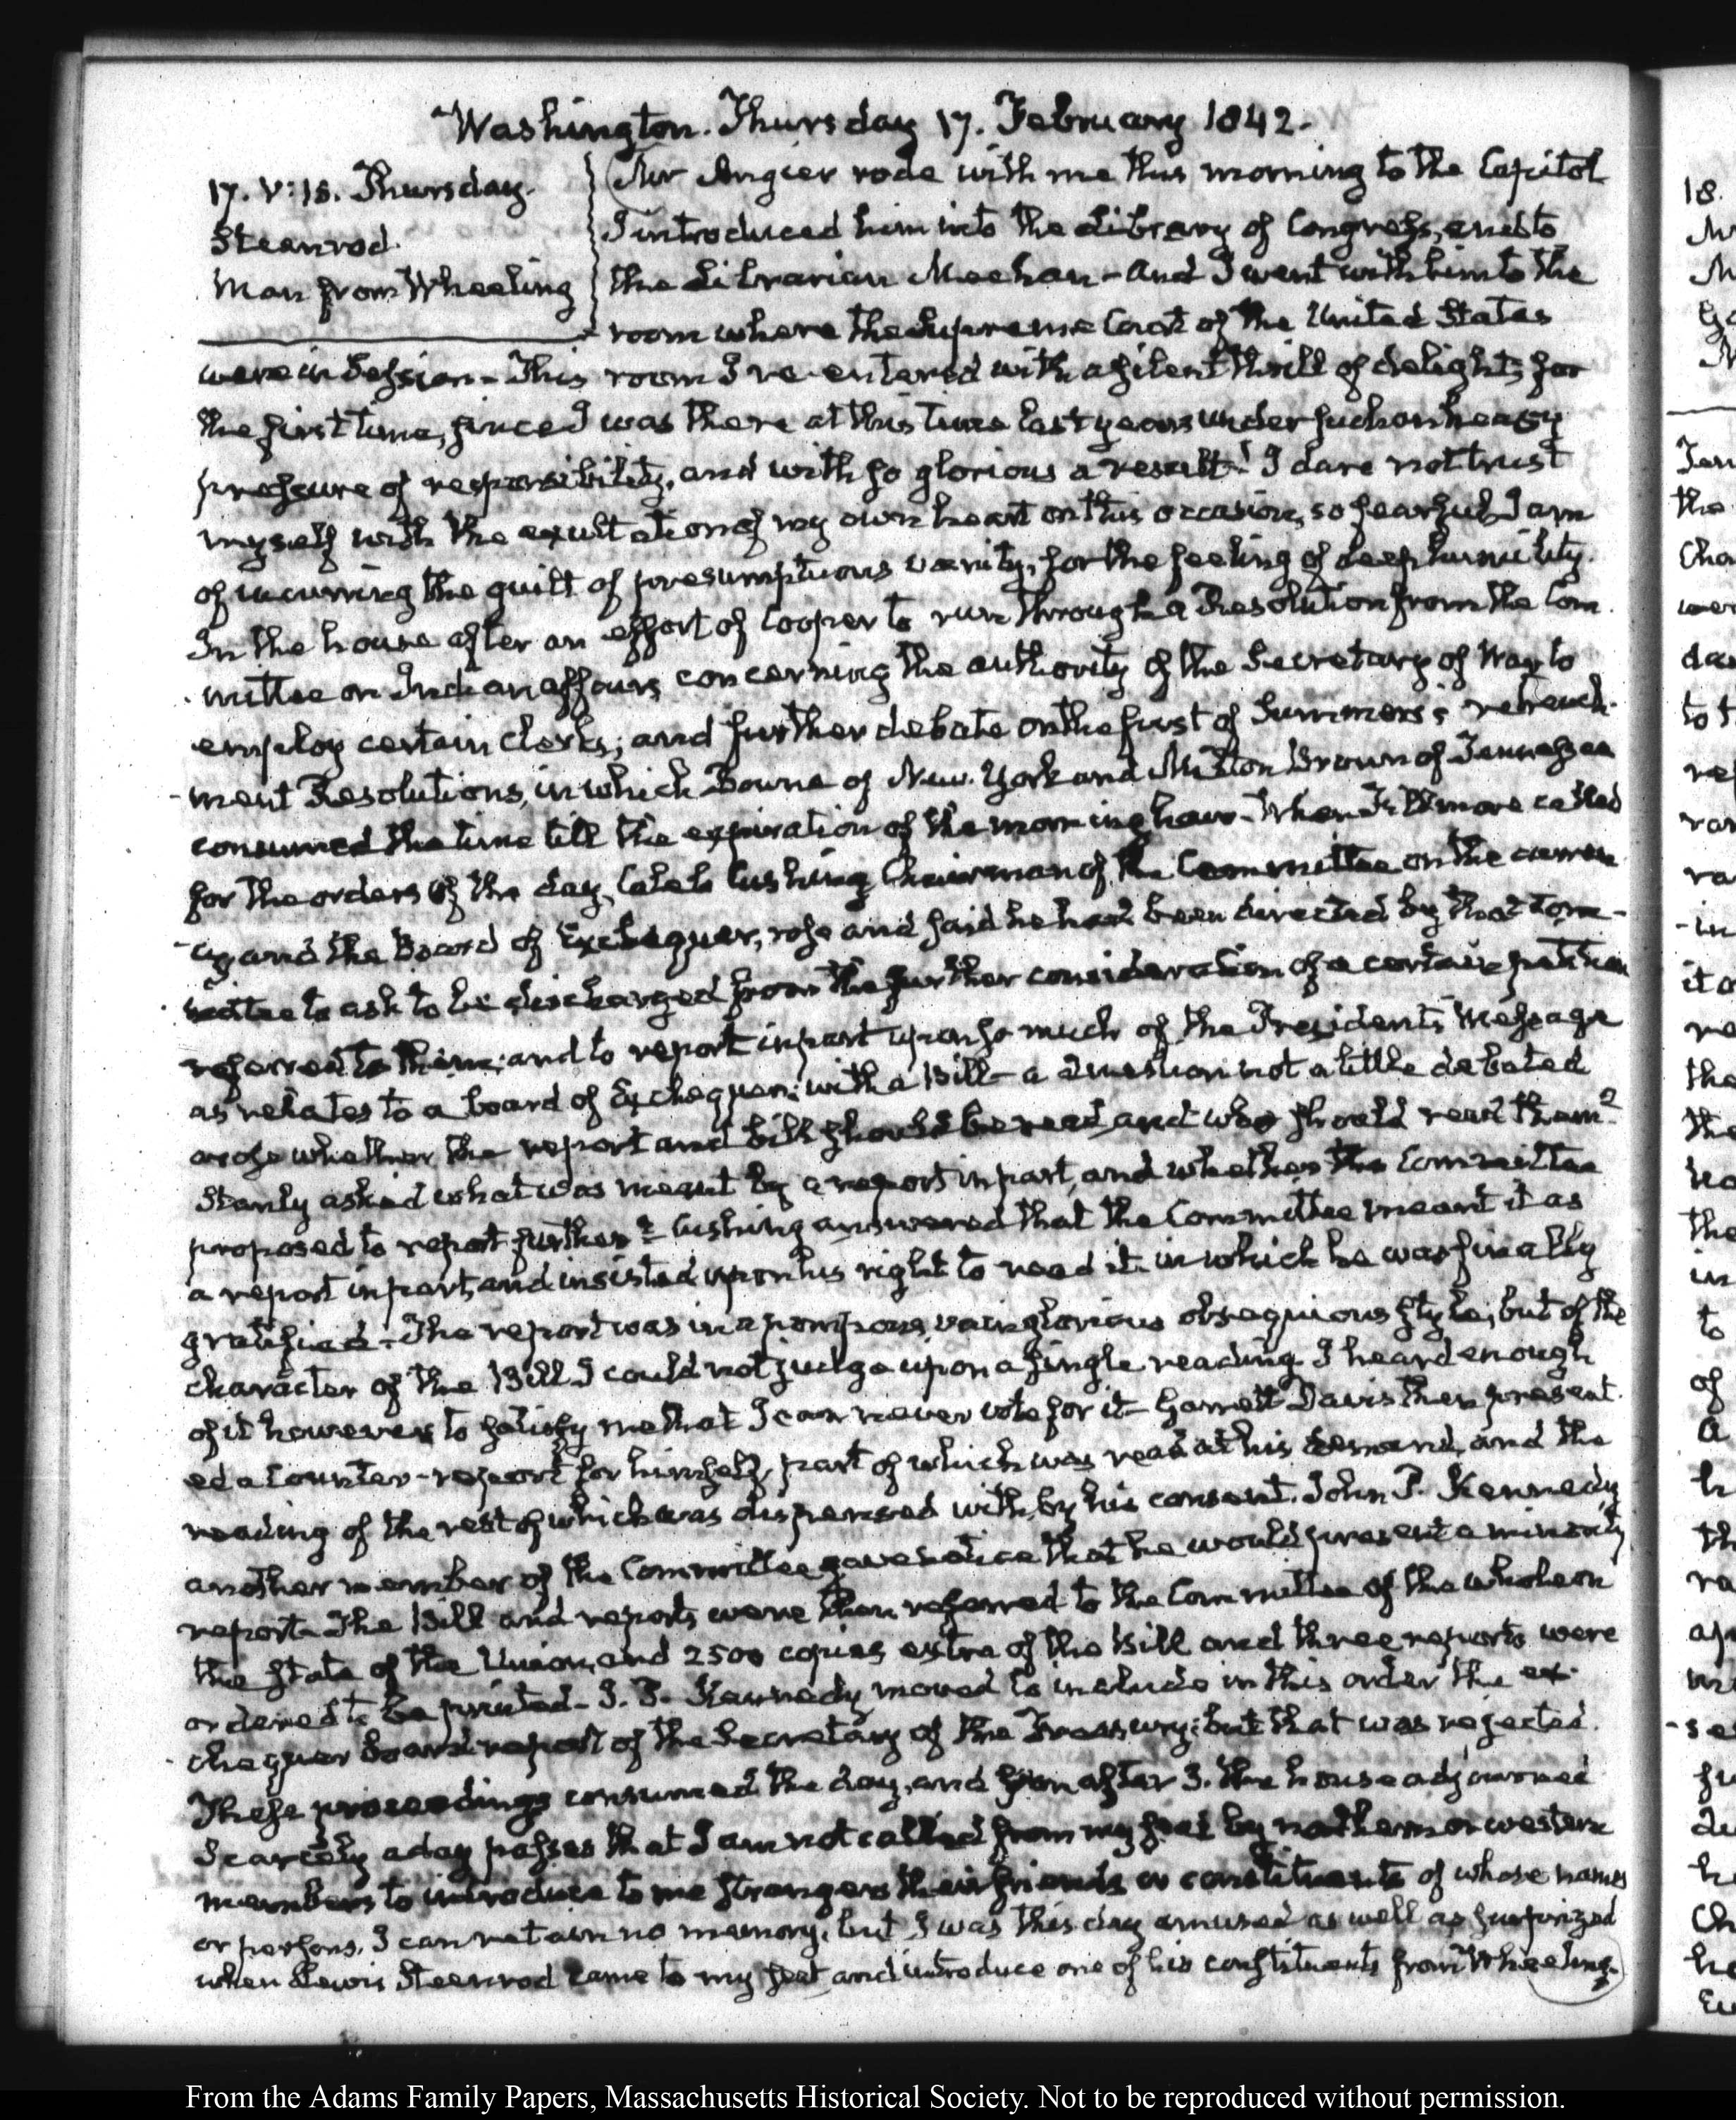 Washington. Thursday 17. February 1842.
17. V:15. Thursday.
Steenrod.
Man from Wheeling
Mr Angier rode with me this morning to the Capitol
I introduced him into the Library of Congress, and to
the Librarian Meehan - and I went with him to the
room where the Supreme Court of the United States
were in Session - This room I re-entered with a silent thrill of delight, for
the first time, since I was there at this time last year under such an heavy
pressure of responsibility, and with so glorious a result! I dare not trust
myself with the exultation of my own heart on this occasion, so fearful I am
of incurring the guilt of presumptuous vanity, for the feeling of deep humility.
In the house after an effort of Cooper to run through a Resolution from the Com
mittee on Indian affairs concerning the authority of the Secretary of War to
employ certain clerks; and further debate on the first of Summers's retrench-
-ment Resolutions, in which Bowne of New-York and Milton Brown of Tennessee
consumed the time till the expiration of the morning hour - When Fillmore called
for the orders of the day, Caleb Cushing Chairman of the Committee on the curren
-cy and the Board of Exchequer, rose and said he had been directed by that Com-
mittee to ask to be discharged from the further consideration of a certain petition
referred to them; and to report in part upon so much of the President's Message
as relates to a board of Exchequer; with a Bill - a question not a little debated
arose whether the report and bill should be read, and who should read them?
Stanly asked what was meant by a report in part, and whether the Committee
proposed to report further? Cushing answered that the Committee meant it as
a report in part, and insisted upon his right to read it in which he was finally
gratified - The report was in a pompous, vainglorious obsequious style, but of the
character of the Bill I could not judge upon a single reading. I heard enough
of it however to satisfy me that I can never vote for it - Garrett Davis then present-
ed a Counter-report for himself, part of which was read at his demand, and the
reading of the rest of which was dispensed with, by his consent. John P. Kennedy
another member of the Committee gave notice that he would present a minority
report - The Bill and reports were then referred to the Committee of the whole on
the state of the Union, and 2500 copies extra of the Bill and three reports were
ordered to be printed - J. P. Kennedy moved to include in this order the ex-
-chequer board report of the Secretary of the Treasury; but that was rejected.
These proceedings consumed the day, and soon after 3. the house adjourned
Scarcely a day passes that I am not called from my seat by northern or western
members to introduce to me strangers their friends or constituents of whose names
or persons, I can retain no memory, but I was this day amused as well as surprized
when Lewis Steenrod came to my seat and introduce one of his constituents from Wheeling.
18.
From the Adams Family Papers, Massachusetts Historical Society. Not to be reproduced without permission.